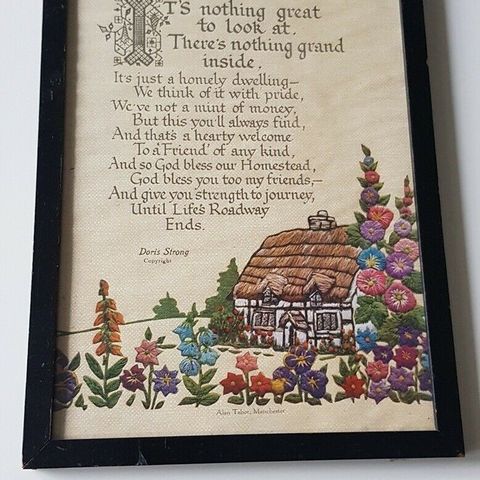 IT'S nothing great
to look at.
There's nothing grand
inside,
It's just a homely dwelling—
We think of it with pride,
We've not a mint of money,
But this you'll always find,
And that's a hearty welcome
To a 'Friend' of any kind,
And so God bless our Homestead,
God bless you too my friends,—
And give you strength to journey,
Until Life's Roadway
Ends.
Doris Strong
Copyright
Alan Tabor, Manchester